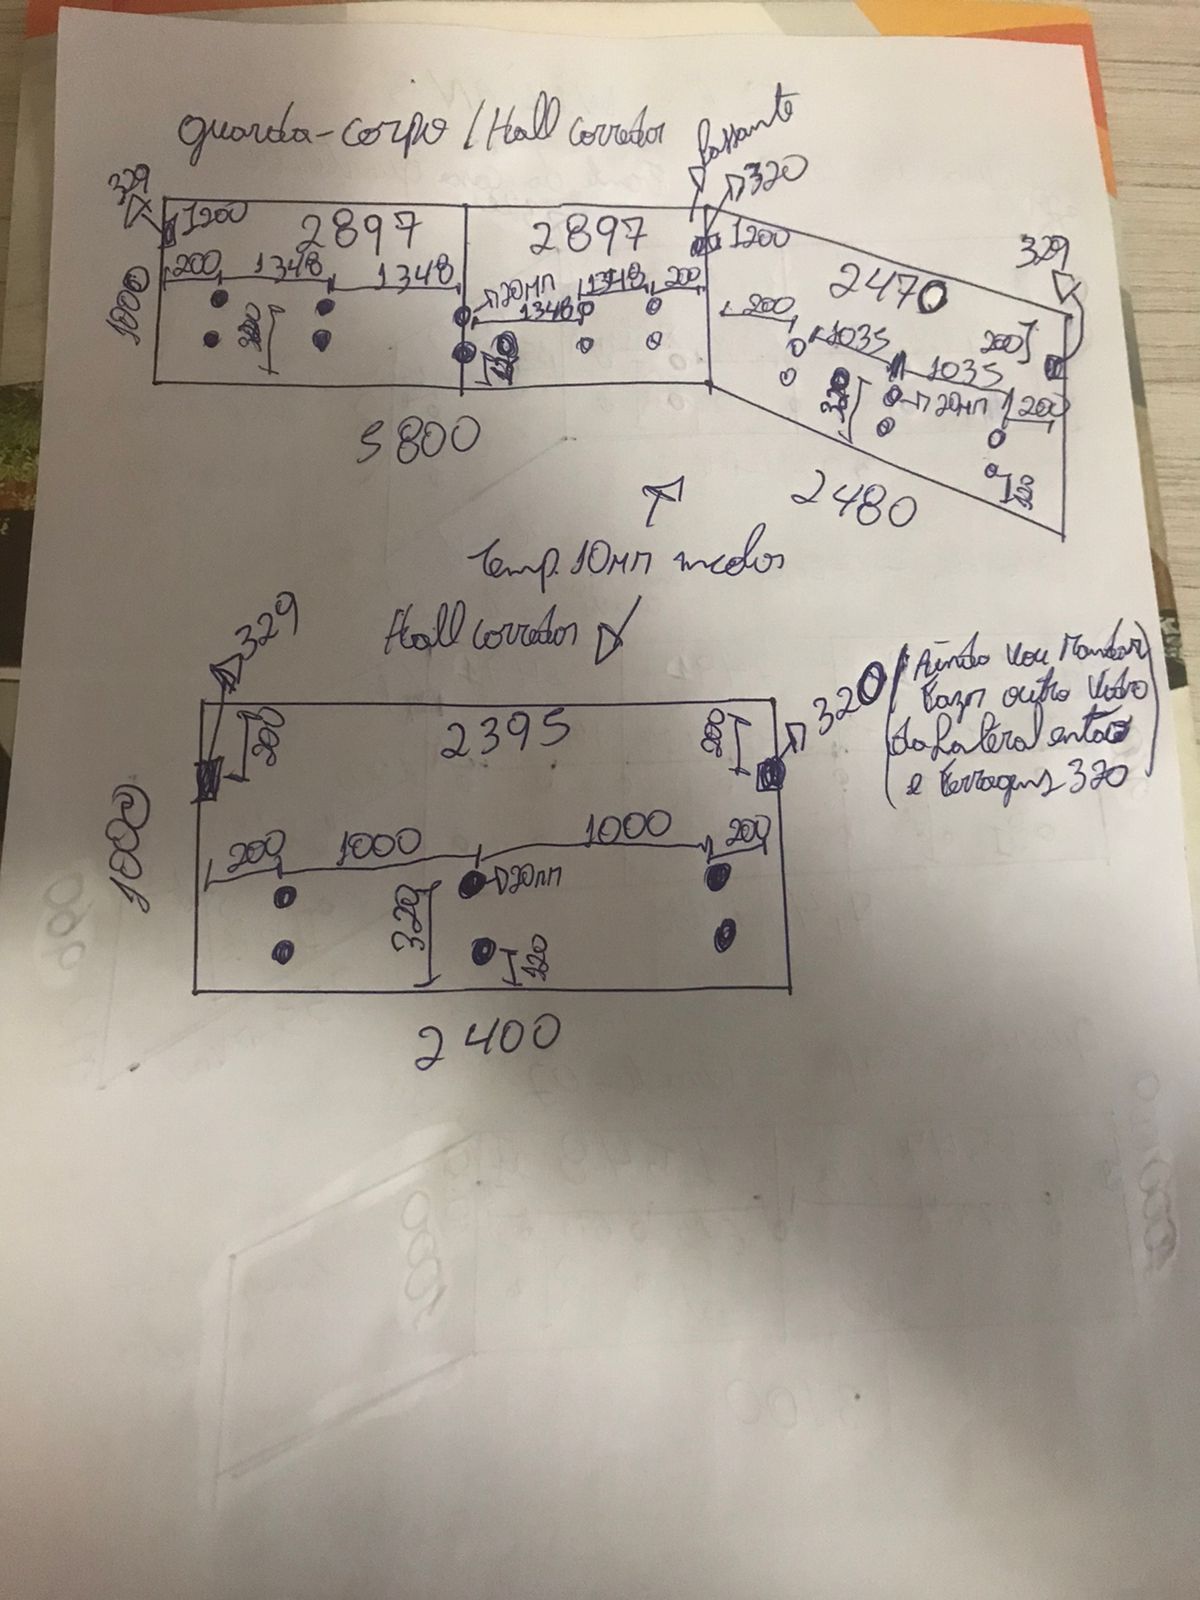 guarda-corpo / Hall corredor
Passante
329
320
1200
2897
2897
1200
329
2470
1000
200
1348
1348
20mm
1348
1348
200
200
1035
200
320
120
320
1035
20mm
200
120
5800
2480
Temp. 10mm incolor
Hall corredor
329
320
(Ainda vou Mandar
Fazer outro Vidro
da Lateral então
e Ferragens 320)
200
2395
200
1000
200
1000
1000
200
20mm
320
120
2400